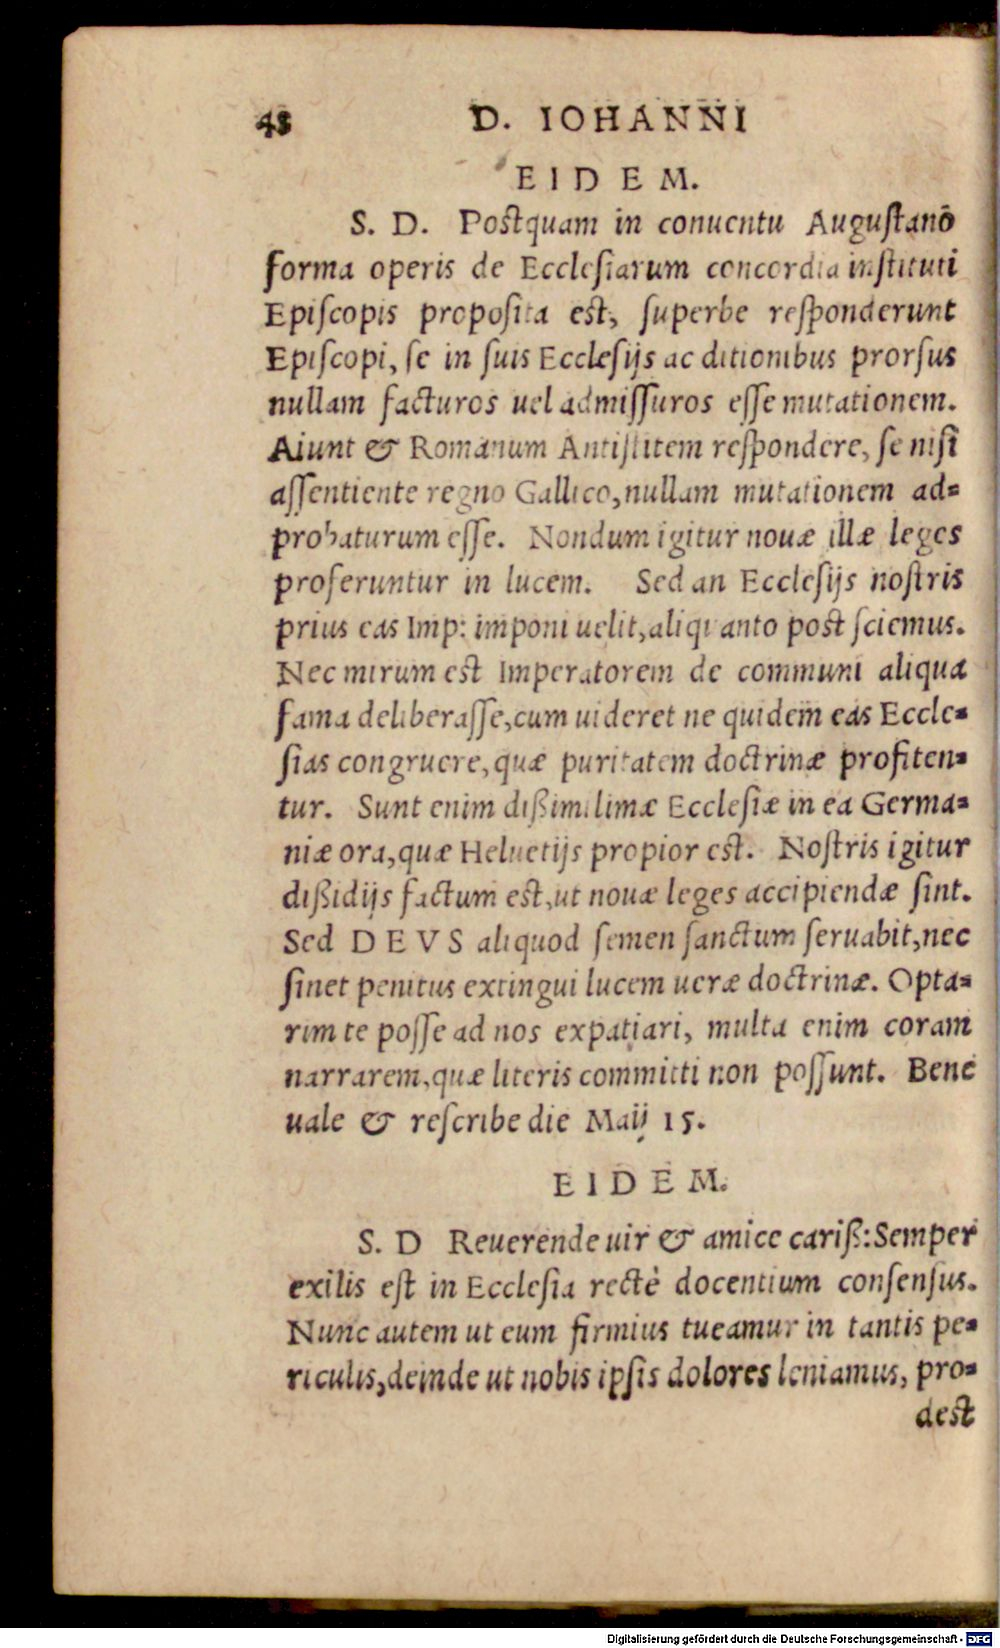 48 D. IOHANNI
EIDEM.
S. D. Postquam in conuentu Augustanõ
forma operis de Ecclesiarum concordia instituti
Episcopis proposita est, superbe responderunt
Episcopi, se in suis Ecclesijs ac ditionibus prorsus
nullam facturos uel admissuros esse mutationem.
Aiunt & Romanum Antistitem respondere, se nisi
assentiente regno Gallico, nullam mutationem ad=
probaturum esse. Nondum igitur nouæ illæ leges
proferuntur in lucem. Sed an Ecclesijs nostris
prius eas Imp: imponi uelit, aliquanto post sciemus.
Nec mirum est Imperatorem de communi aliqua
fama deliberasse, cum uideret ne quidem eas Eccle=
sias congruere, quæ puritatem doctrinæ profiten=
tur. Sunt enim dißimilimæ Ecclesiæ in ea Germa=
niæ ora, quæ Heluetijs propior est. Nostris igitur
dißidijs factum est, ut nouæ leges accipiendæ sint.
Sed DEVS aliquod semen sanctum seruabit, nec
sinet penitus extingui lucem ueræ doctrinæ. Opta=
rim te posse ad nos expatiari, multa enim coram
narrarem, quæ literis committi non possunt. Bene
uale & rescribe die Maij 15.
EIDEM.
S. D Reuerende uir & amice cariß: Semper
exilis est in Ecclesia rectè docentium consensus.
Nunc autem ut eum firmius tueamur in tantis pe=
riculis, deinde ut nobis ipsis dolores leniamus, pro=
dest
Digitalisierung gefördert durch die Deutsche Forschungsgemeinschaft - DFG